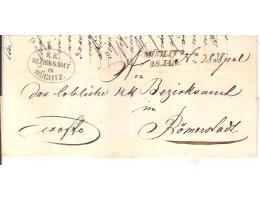 K.K.
BEZIRKSAMT
IN
MÜGLITZ.
MÜGLITZ
28. JAN.
An
das lobliche kk Bezirksamt
in
exoffo
Römerstadt